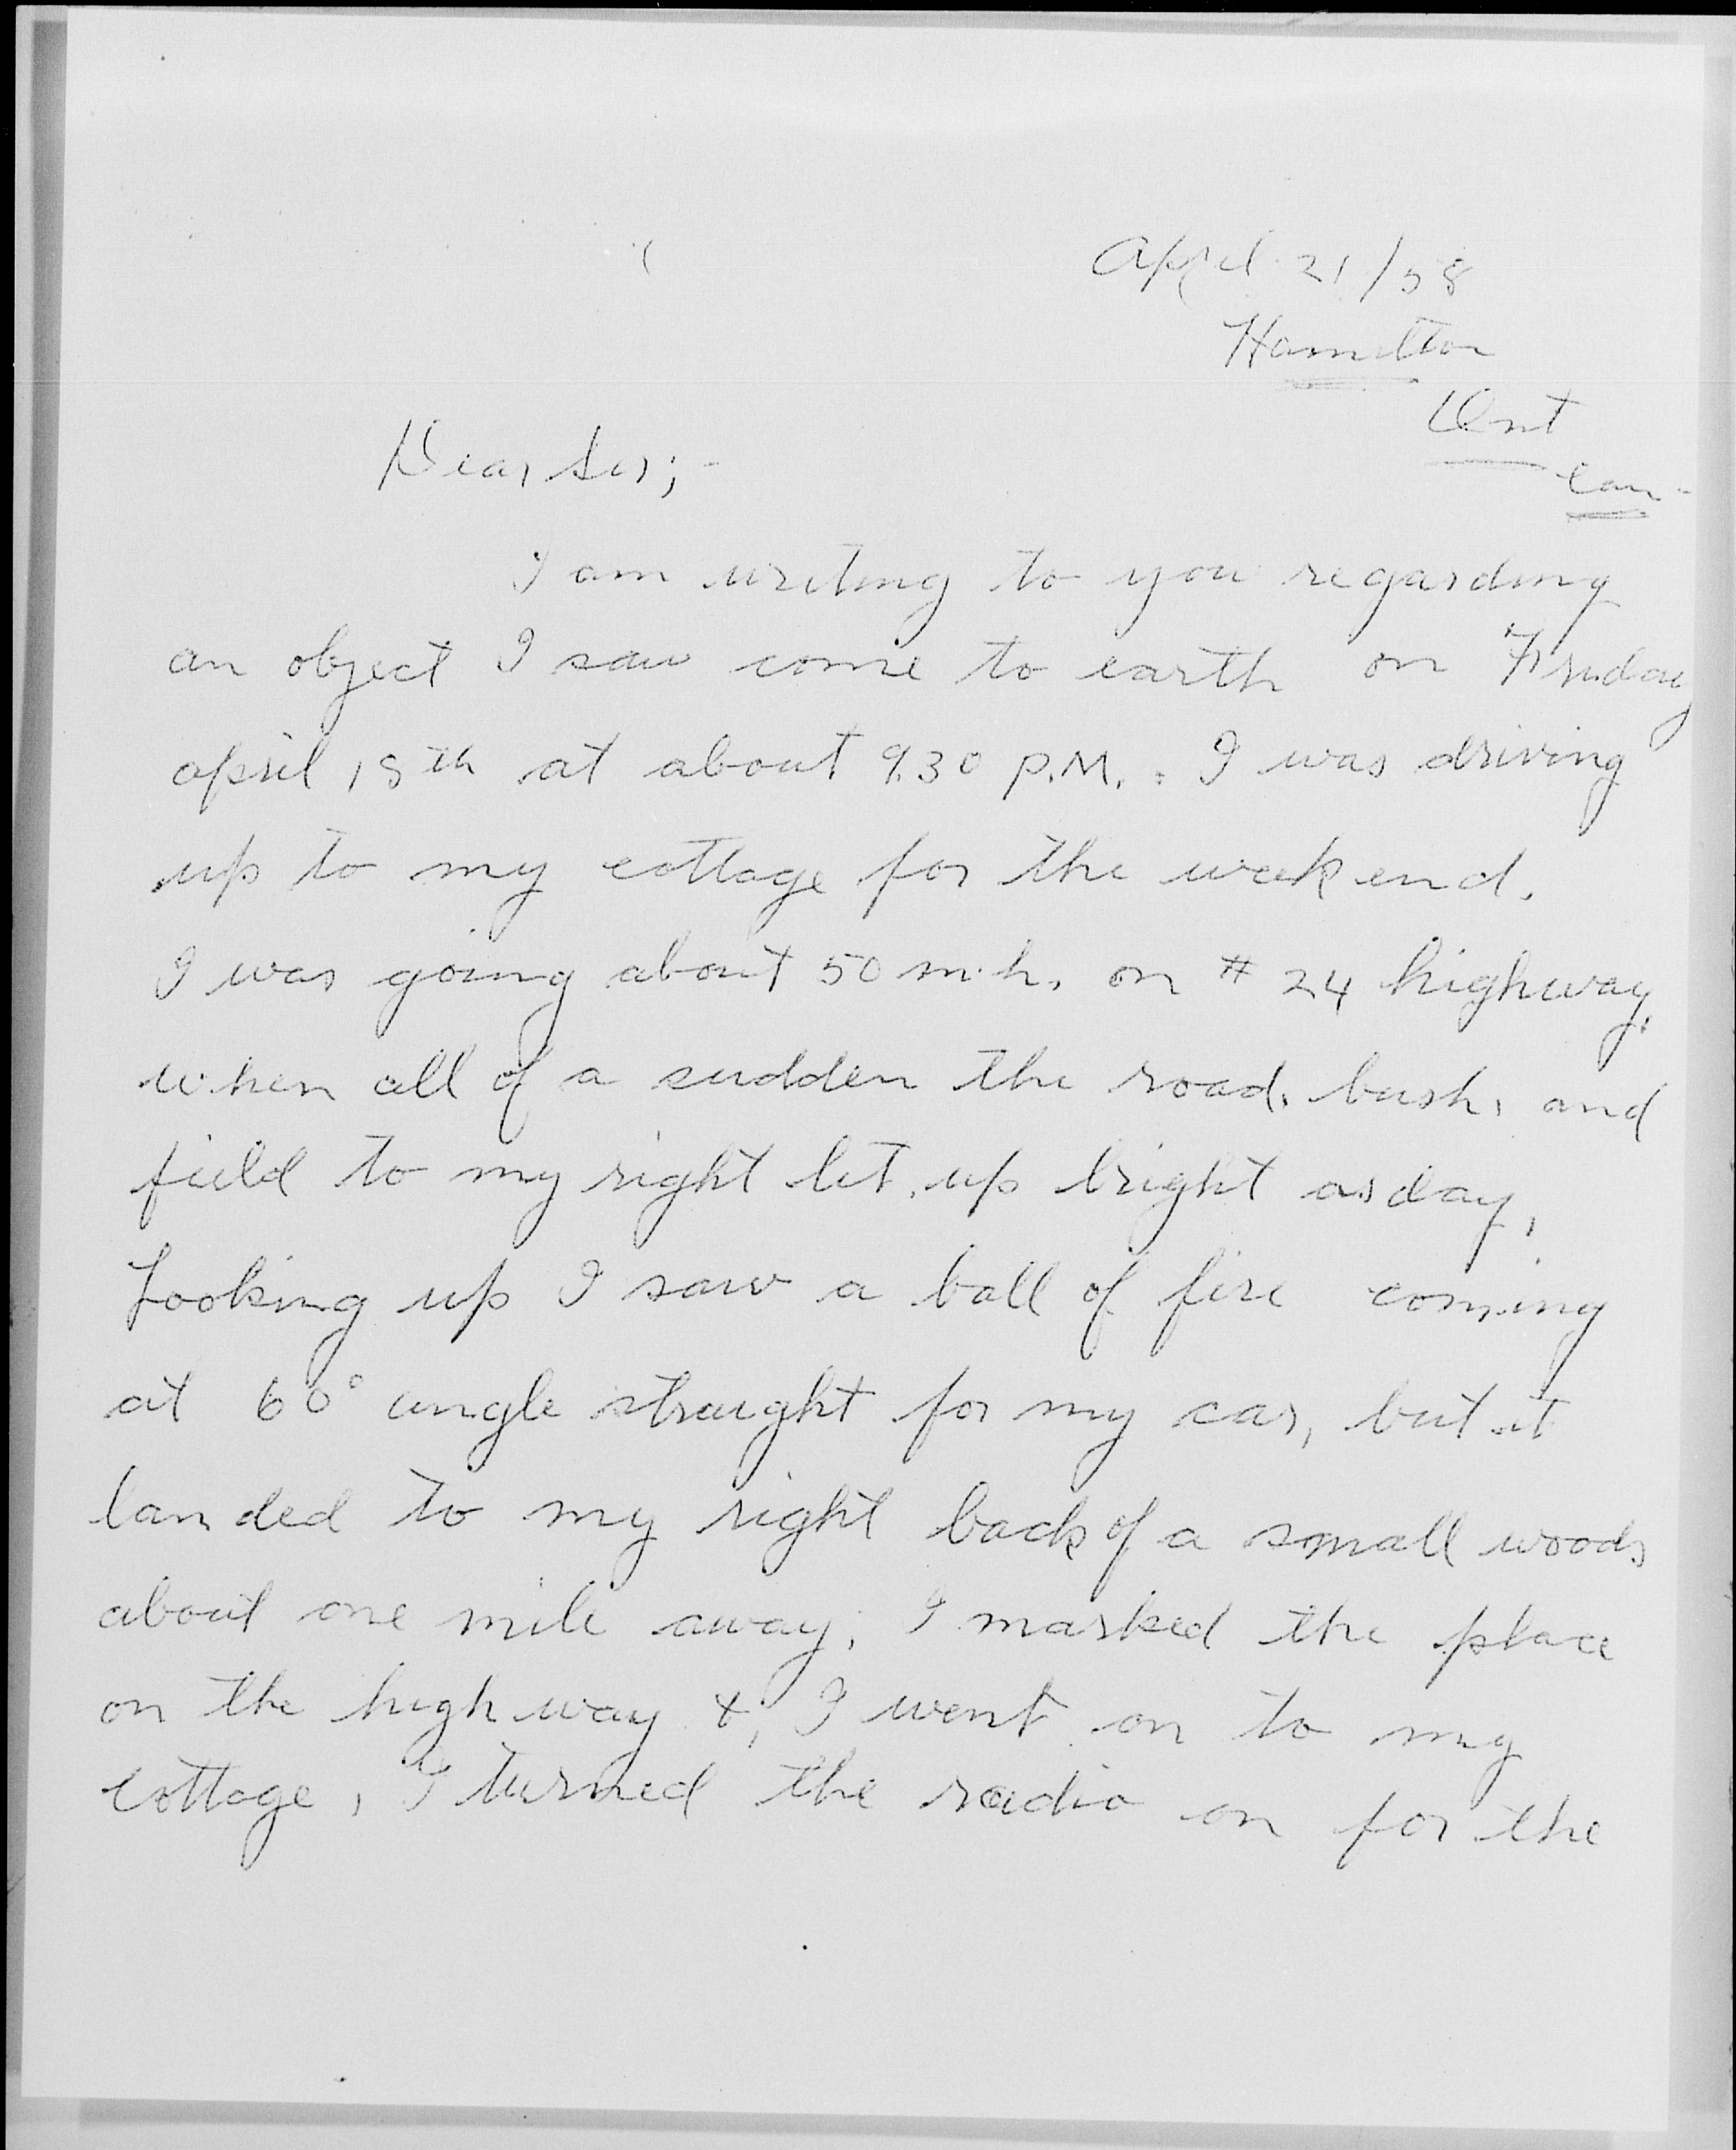 April 21/58
Hamilton
Ont
Can.
Dear Sir;-
I am writing to you regarding
an object I saw come to earth on Friday
april 18th at about 9.30 P.M.. I was driving
up to my cottage for the week end.
I was going about 50 m.h. on # 24 highway,
when all of a sudden the road, bush, and
field to my right lit up bright as day,
Looking up I saw a ball of fire coming
at 60° angle straight for my car, but it
landed to my right back of a small woods
about one mile away, I marked the place
on the high way &, I went on to my
cottage, I turned the radio on for the